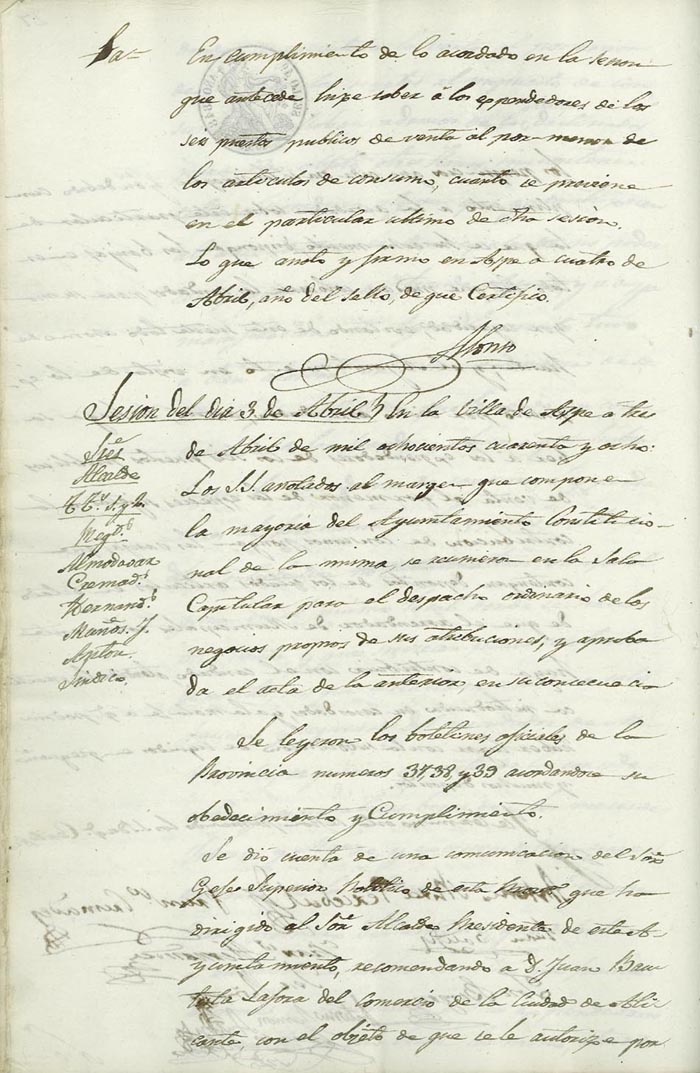 En cumplimiento de lo acordado en la sesion
que antecede hize saber á los espendedores de los
seis puestos publicos de venta al por menor de
los articulos de consumo, cuanto se previene
en el particular ultimo de dha sesion.
Lo que anoto y firmo en Aspe a cuatro de
Abril, año del sello, de que Certifico.
Alonso
Sesion del dia 3 de Abril } En la Villa de Aspe a tres
de Abril de mil ochocientos cuarenta y ocho:
Los SS. anotados al margen que componen
la mayoria del Ayuntamiento Constitucio
nal de la misma, se reunieron en la Sala
Capitular para el despacho ordinario de los
negocios propios de sus atribuciones, y aproba
da el acta de la anterior, en su consecuencia
Sres
Alcalde
Tts. 1. y 2.
Regds.
Almodovar
Cremads.
Hernands.
Muños. J.
Sindico.
Se leyeron los boletines oficiales de la
Provincia numeros 37, 38, y 39 acordandose su
obedecimiento y Cumplimiento.
Se dió cuenta de una comunicacion del Sor.
Gefe Superior Politico de esta Prova. que ha
dirigido al Sor. Alcalde Presidente de este A-
yuntamiento, recomendando a D. Juan Bau
tista Lafora del Comercio de la Ciudad de Ali
cante, con el objeto de que se le autorize por